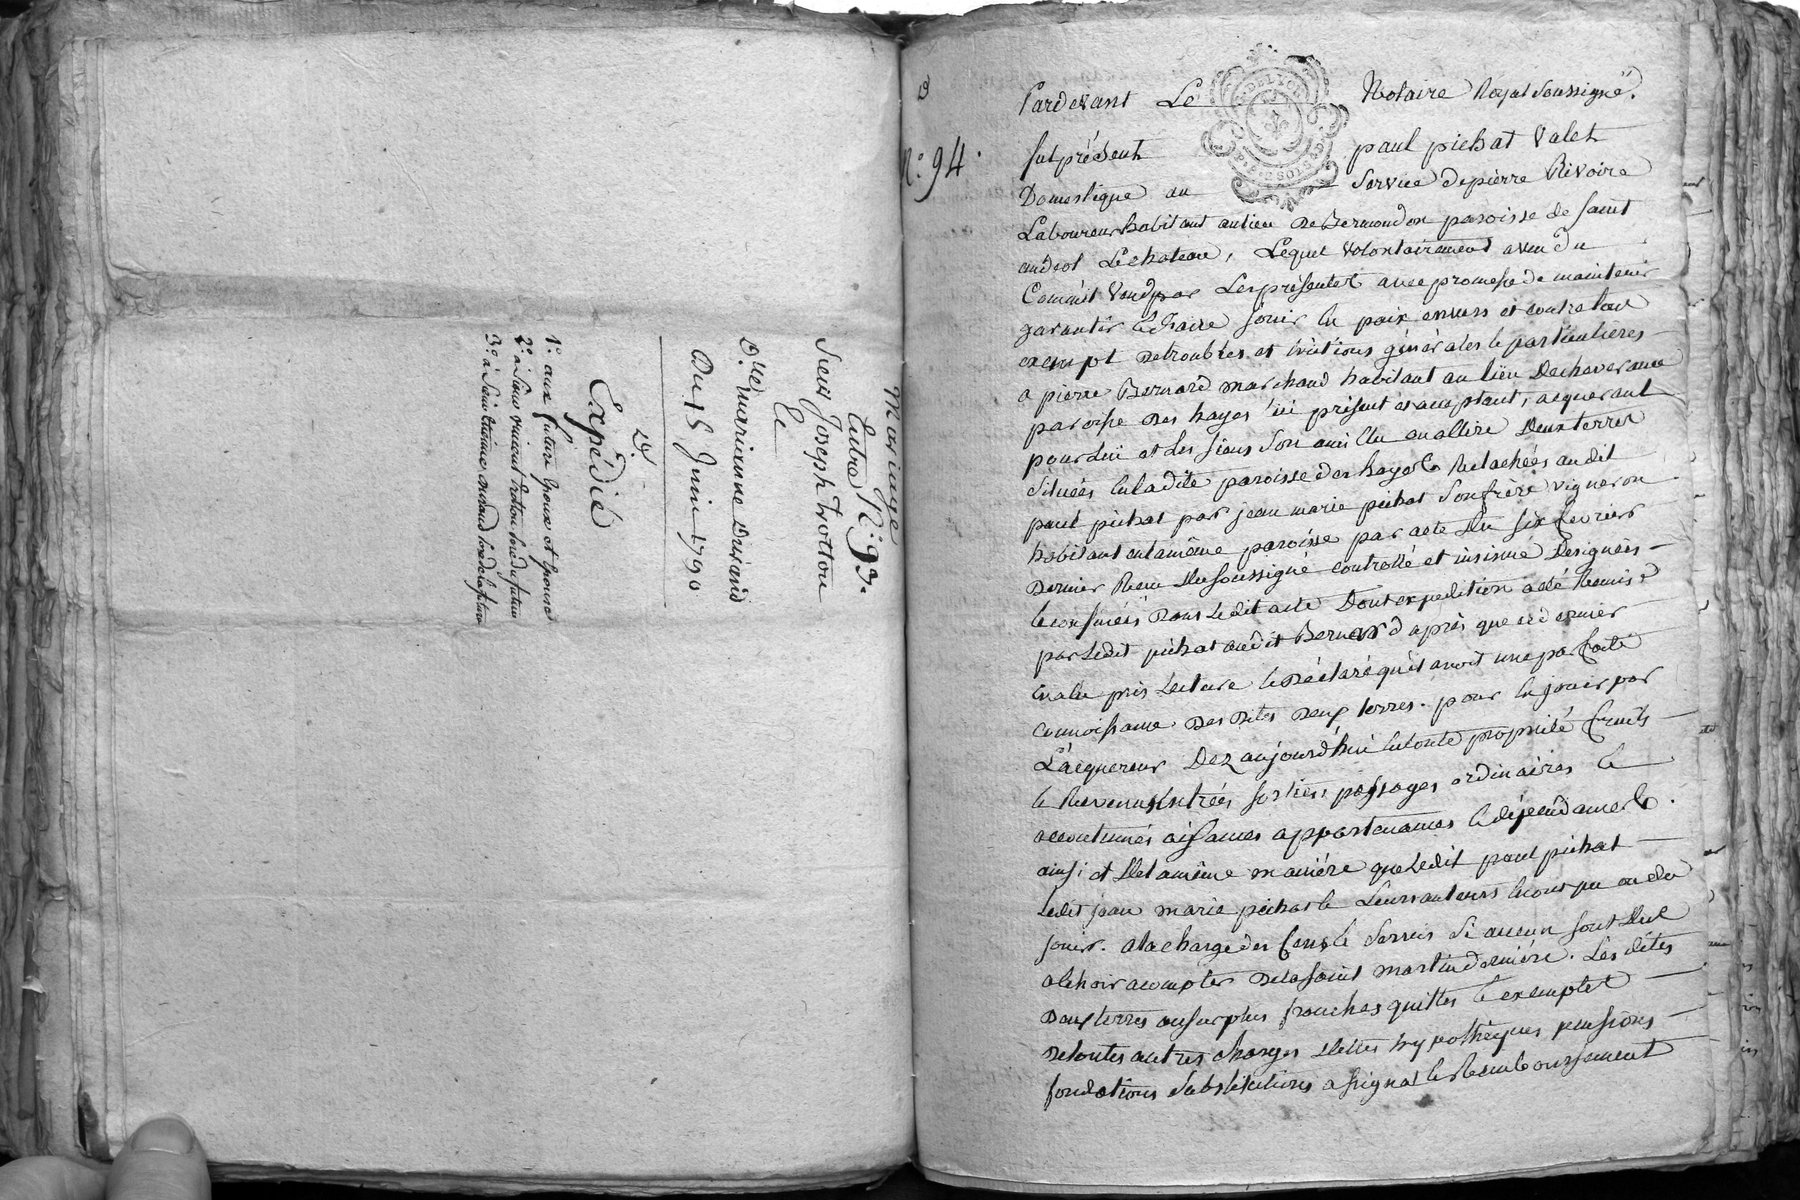 Mariage
Entre N.° 93.
Sieur Joseph Trotton
Et
D.lle Marianne Durand
Du 15 Juin 1790
Expédié
1.° aux future Epoux et Epouse
N.° 94.
Pardevant Le Notaire Royal Soussigné.
fut présent paul pichat Valet
Domestique au Service de pierre Rivoire
Laboureur habitant au lieu de Bermondon paroisse de saint
andeol Lechateau, Lequel volontairement a vendu
Comme il Vend par Les présentes avec promesse de maintenir
garantir et faire jouir en paix envers et contre tous
exempt de troubles et evictions générales et particulieres
a pierre Bernard marchand habitant au lieu de chaverannes
paroisse des hayes ici présent et acceptant, acquereur
pour lui et les siens son ami elu ou a elire Deux terres
situées en la dite paroisse des hayes et Relachées audit
paul pichat par jean marie pichat son frère vigneron
habitant en la même paroisse par acte du six fevrier
Dernier Reçu du soussigné controllé et insinué Designées
et confinées dans le dit acte Dont expedition a été Remise
par ledit pichat audit Bernard après que ce dernier
en a eu pris Lecture et Déclaré qu'il avoit une parfaite
connoissance des dites deux terres. pour en jouir par
L'acquereur Dez aujourd'hui en toute propriété fruits
et Revenus Entrées sorties passages ordinaires et
accoutumés aisances appartenances et dépendances
ainsi et de la même manière que ledit paul pichat
ledit jean marie pichat et Leurs auteurs en ont pu ou du
jouir. a la charge des Cens et servis si aucun sont dus
a echoir a compter de la saint martin dernière. Les dites
Deux terres au surplus franches quittes et exemptes
de toutes autres charges dettes hypothèques pensions
fondations substitutions assignat et Remboursement